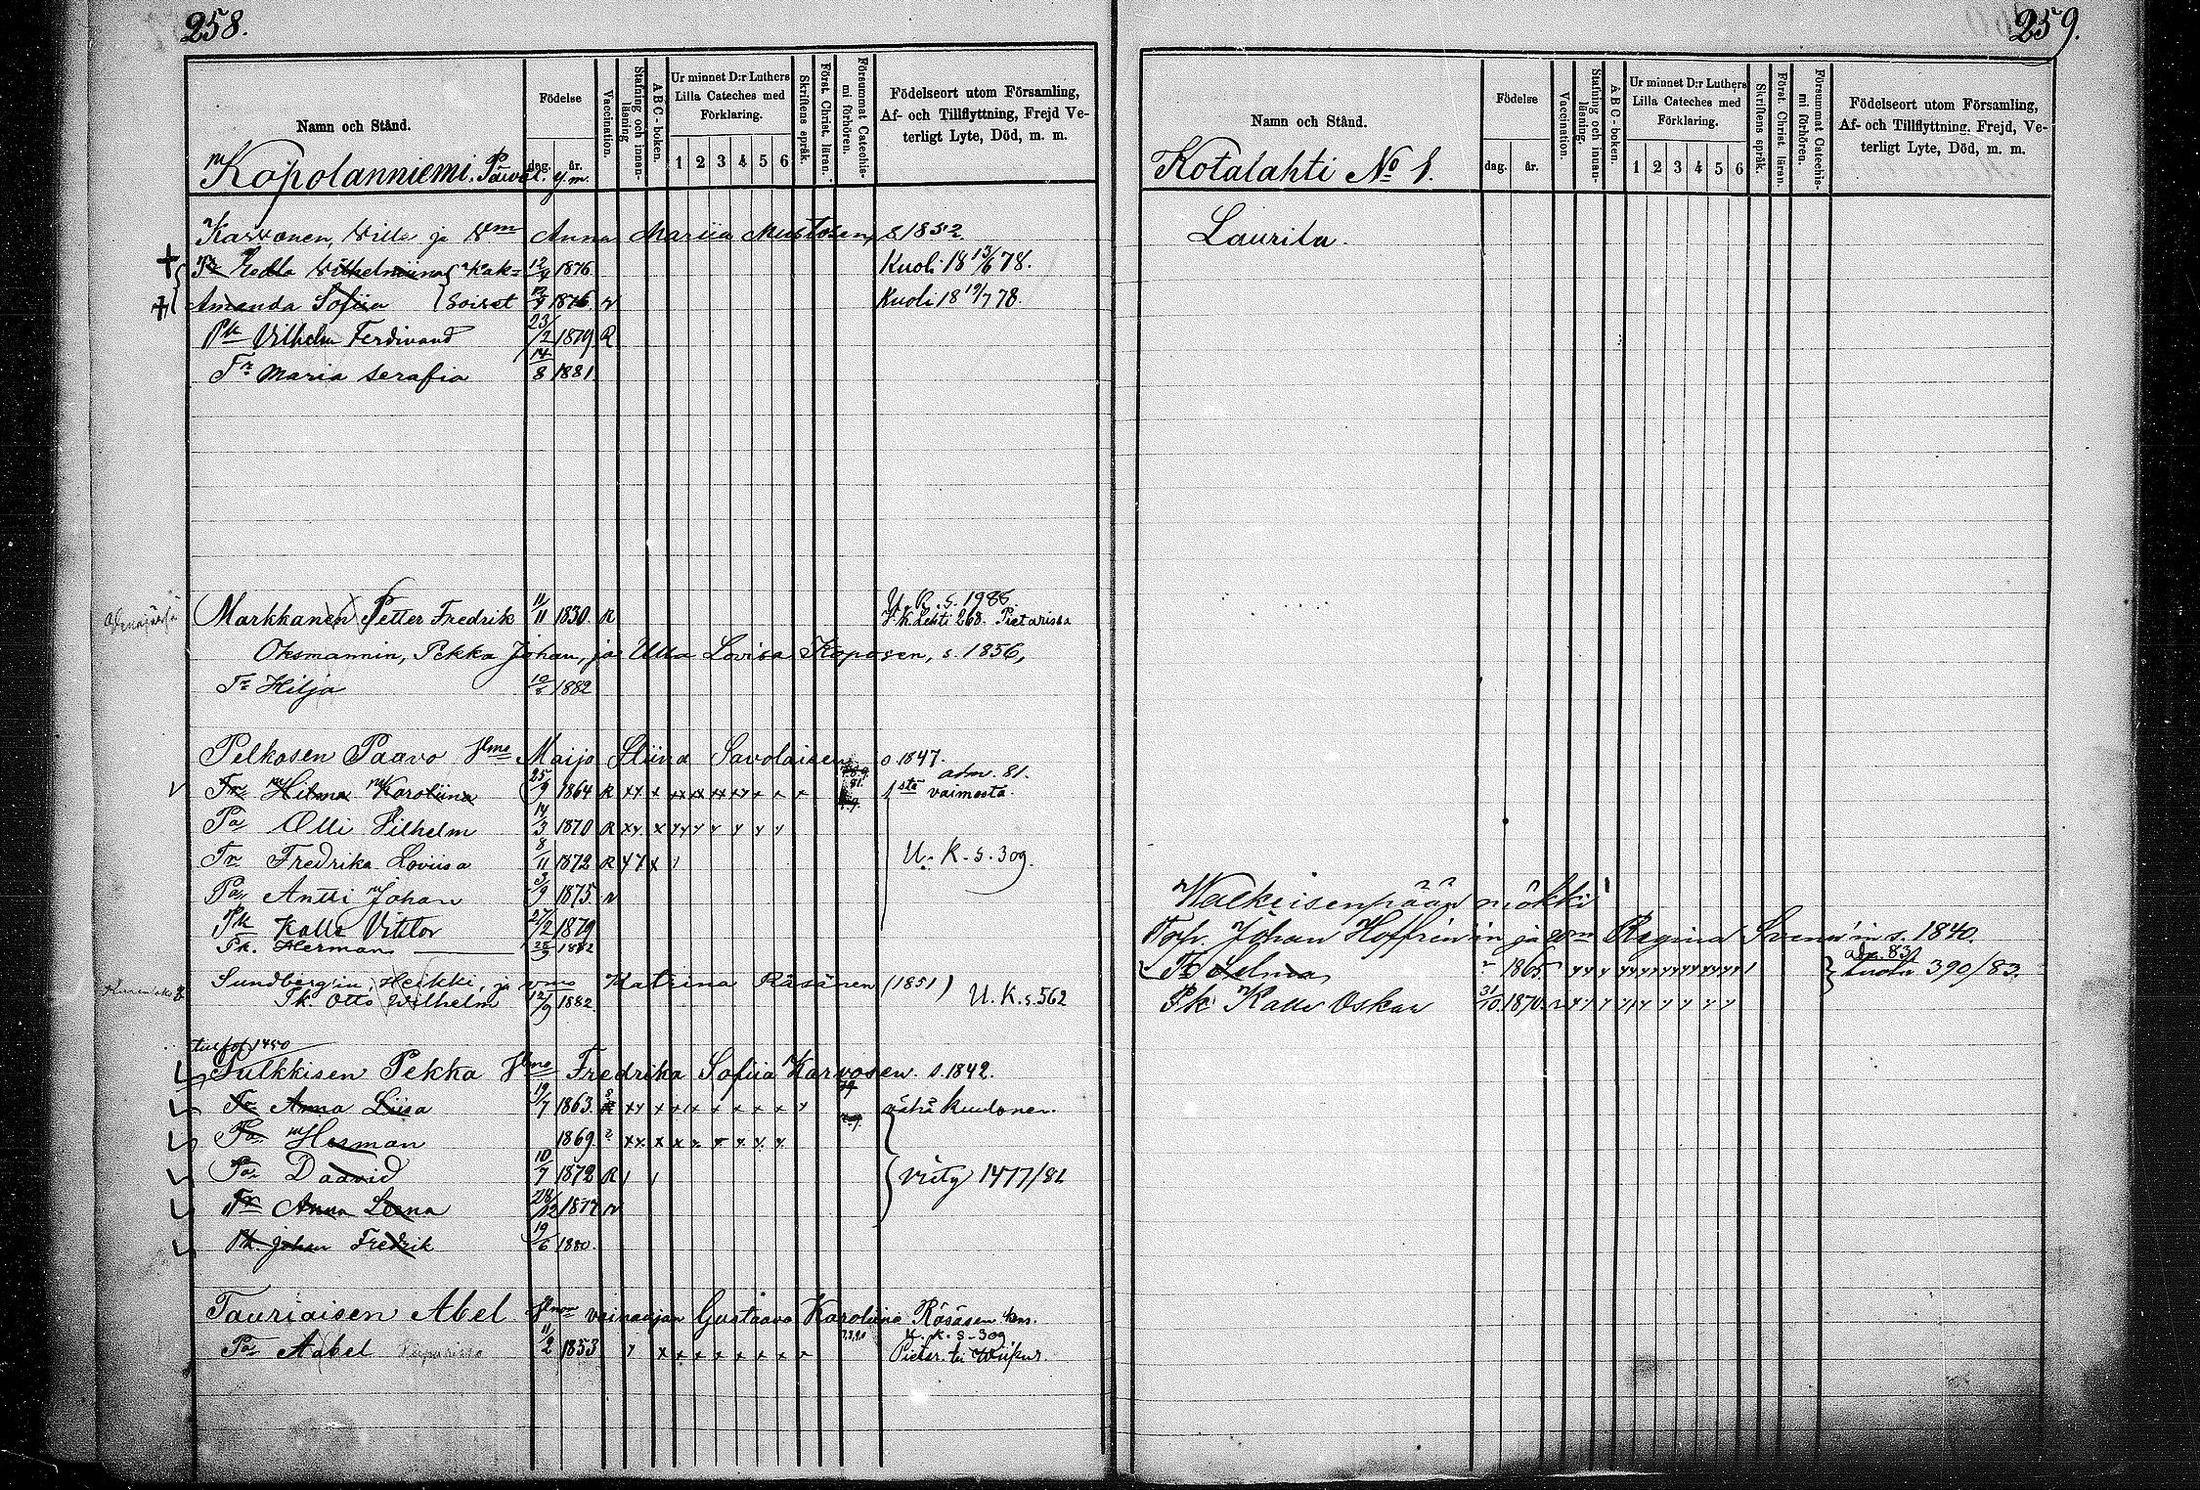 258.
Namn och Stånd.
Födelse
dag. år.
Vaccination.
Stafning och innan-läsning
ABC-boken.
Ur minnet D:r Luthers Lilla Cateches med Förklaring.
1 2 3 4 5 6
Skriftens språk.
Först. Christ. läran.
Försummat Catechis-mi förhören.
Födelseort utom Församling, Af- och Tillflyttning, Frejd Ve-terligt Lyte, Död, m. m.
Kopolanniemi. Päiväl. y. m.
Karvonen, Wille ja Wm Anna Mariia Mustosen, s. 1852.
Tr Hedla Wilhelmiina Kak- 12/4 1876. Kuoli 18 13/6 78.
Amanda Sofiia soiset 12/4 1876. Kuoli 18 19/7 78.
Pk Vilhelm Ferdinand 23/2 1879. R
Tr Maria Serafia 14/8 1881.
Markkanen Petter Fredrik 11/11 1830. R U. R. S. 1986
Lehti 268. Pietarissa
Oksmannin, Pekka Johan, ja Ulla Lovisa Koposen, s. 1856,
Tr Hilja 1882
Pelkosen Paavo Hmo Maija Stiina Savolaisen s 1847.
Tr Hilma Karoliina 25/9 1864 R adm. 81. 1stä vaimosta.
Pa Olli Vilhelm 14/3 1870 R
Tr Fredrika Loviisa 8/11 1872 R U. K. S. 309.
Pa Antti Johan 3/9 1875.
Pk Kalle Viktor 27/2 1879
Pk. Herman 1882
Sundberg'in, Heikki, ja vmo Katrina Räsänen (1851)
Pk. Otto Wilhelm 12/9 1882. U. K. s. 562
Pulkkisen Pekka Hmo Fredrika Sofiia Karvosen. s. 1842.
Tr Anna Liisa 19/7 1863. vähä kuuloner.
Pa Herman 1869.
Pa Daavid 10/7 1872 R 1477/82
Tr Anna Leena 28/12 1877
Pk. Johan Fredrik 19/6 1880.
Tauriaisen Abel leskivainaajan Gustaava Karoliina Räsäsen
Pa Aabel 11/2 1853 U. K. S. 309
259.
Namn och Stånd.
Födelse
dag. år.
Vaccination.
Stafning och innan-läsning.
ABC-boken.
Ur minnet D:r Luthers Lilla Cateches med Förklaring.
1 2 3 4 5 6
Skriftens språk.
Först. Christ. läran.
Försummat Catechis-mi förhören.
Födelseort utom Församling, Af- och Tillflyttning, Frejd, Ve-terligt Lyte, Död, m. m.
Kotalahti No 1.
Laurila.
Walkeisenpään mökki
Torp. Johan Hoffrén'in ja wm Regina Svenn'in s. 1840.
Tr Selma 1865 adm. 83 390/83.
Pk Kalle Oskar 31/10 1870.